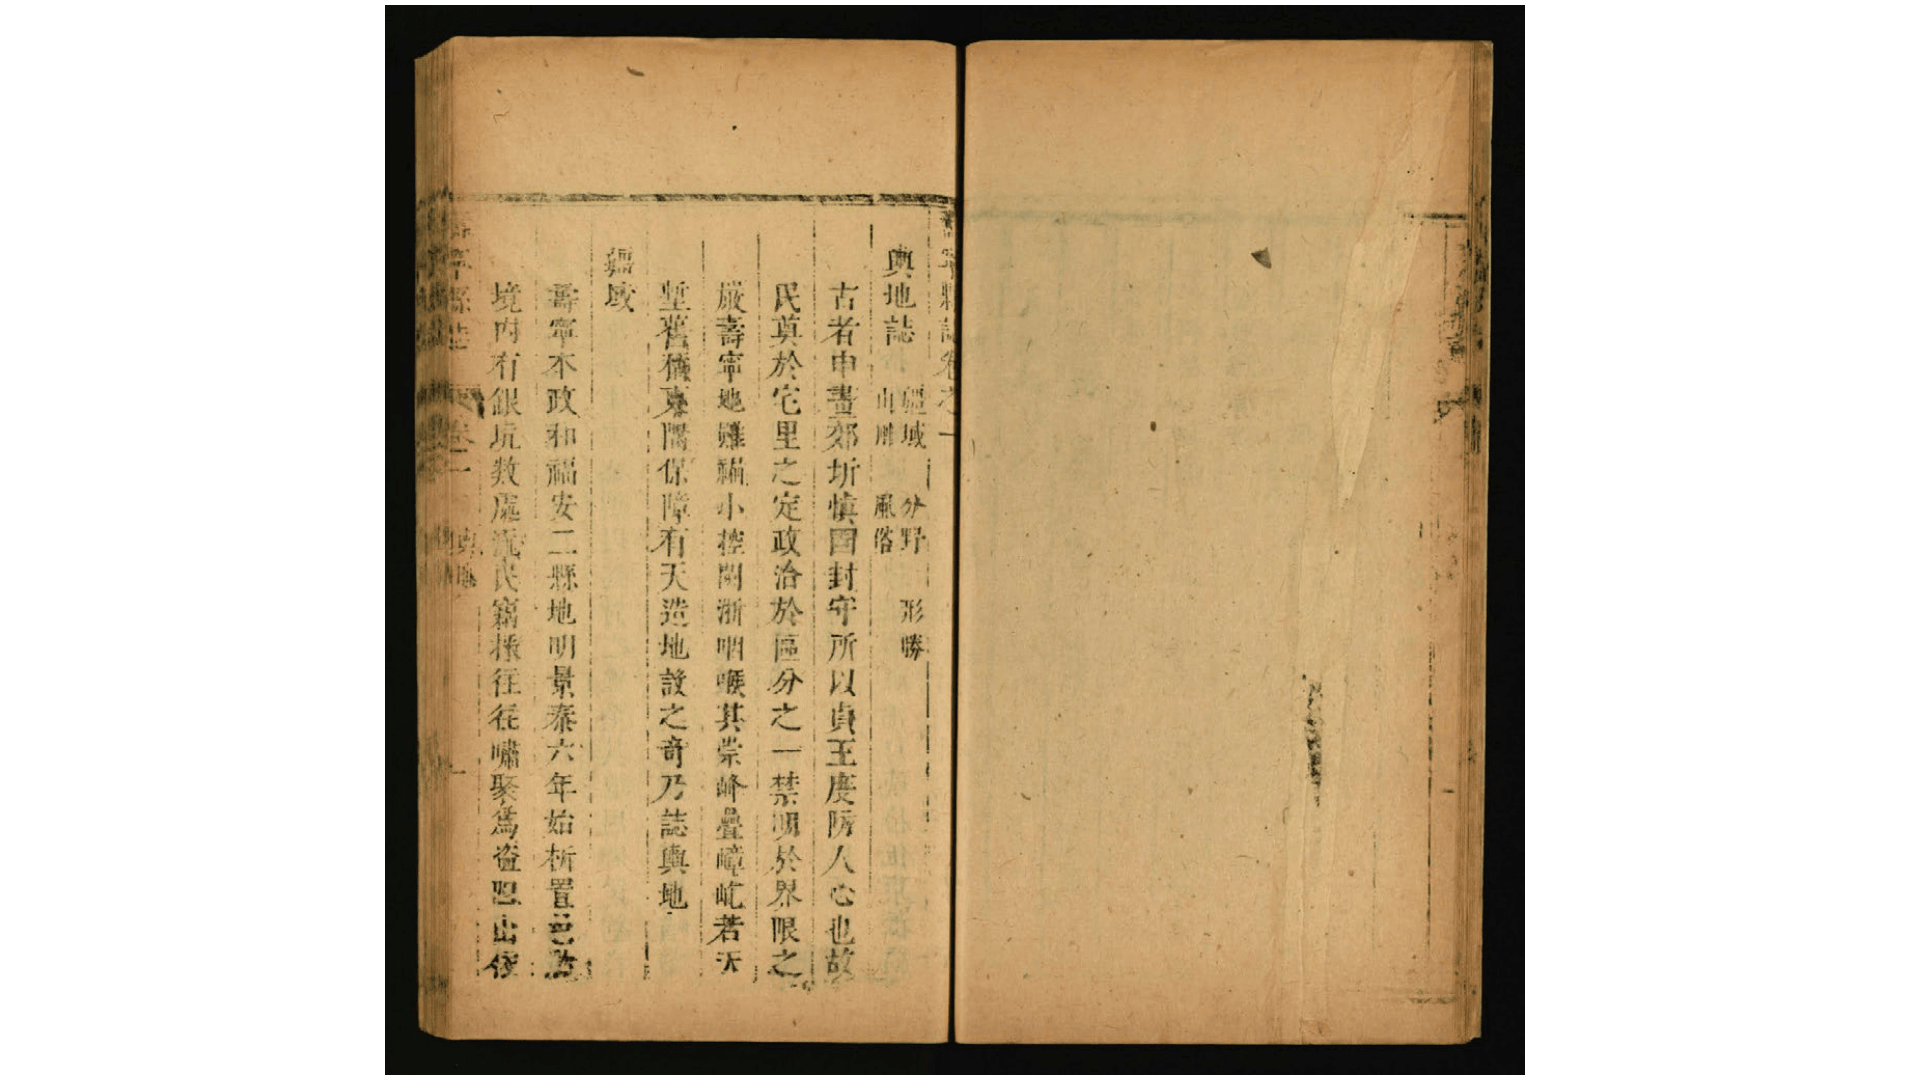 壽寧縣誌卷之一
輿地誌 疆域 分野 形勝
山川 風俗
古者申畫郊圻慎固封守所以貞王度防人心也故
民莫於宅里之定政治於區分之一禁明於界限之
嚴壽寧地雖褊小控閩浙咽喉其崇峰疊嶂屹若天
塹舊稱東隅保障有天造地設之奇乃誌輿地
疆域
壽寧本政和福安二縣地明景泰六年始析置邑
境內有銀坑數處流民竊採往往嘯聚為盜
壽寧縣誌 卷一 輿地